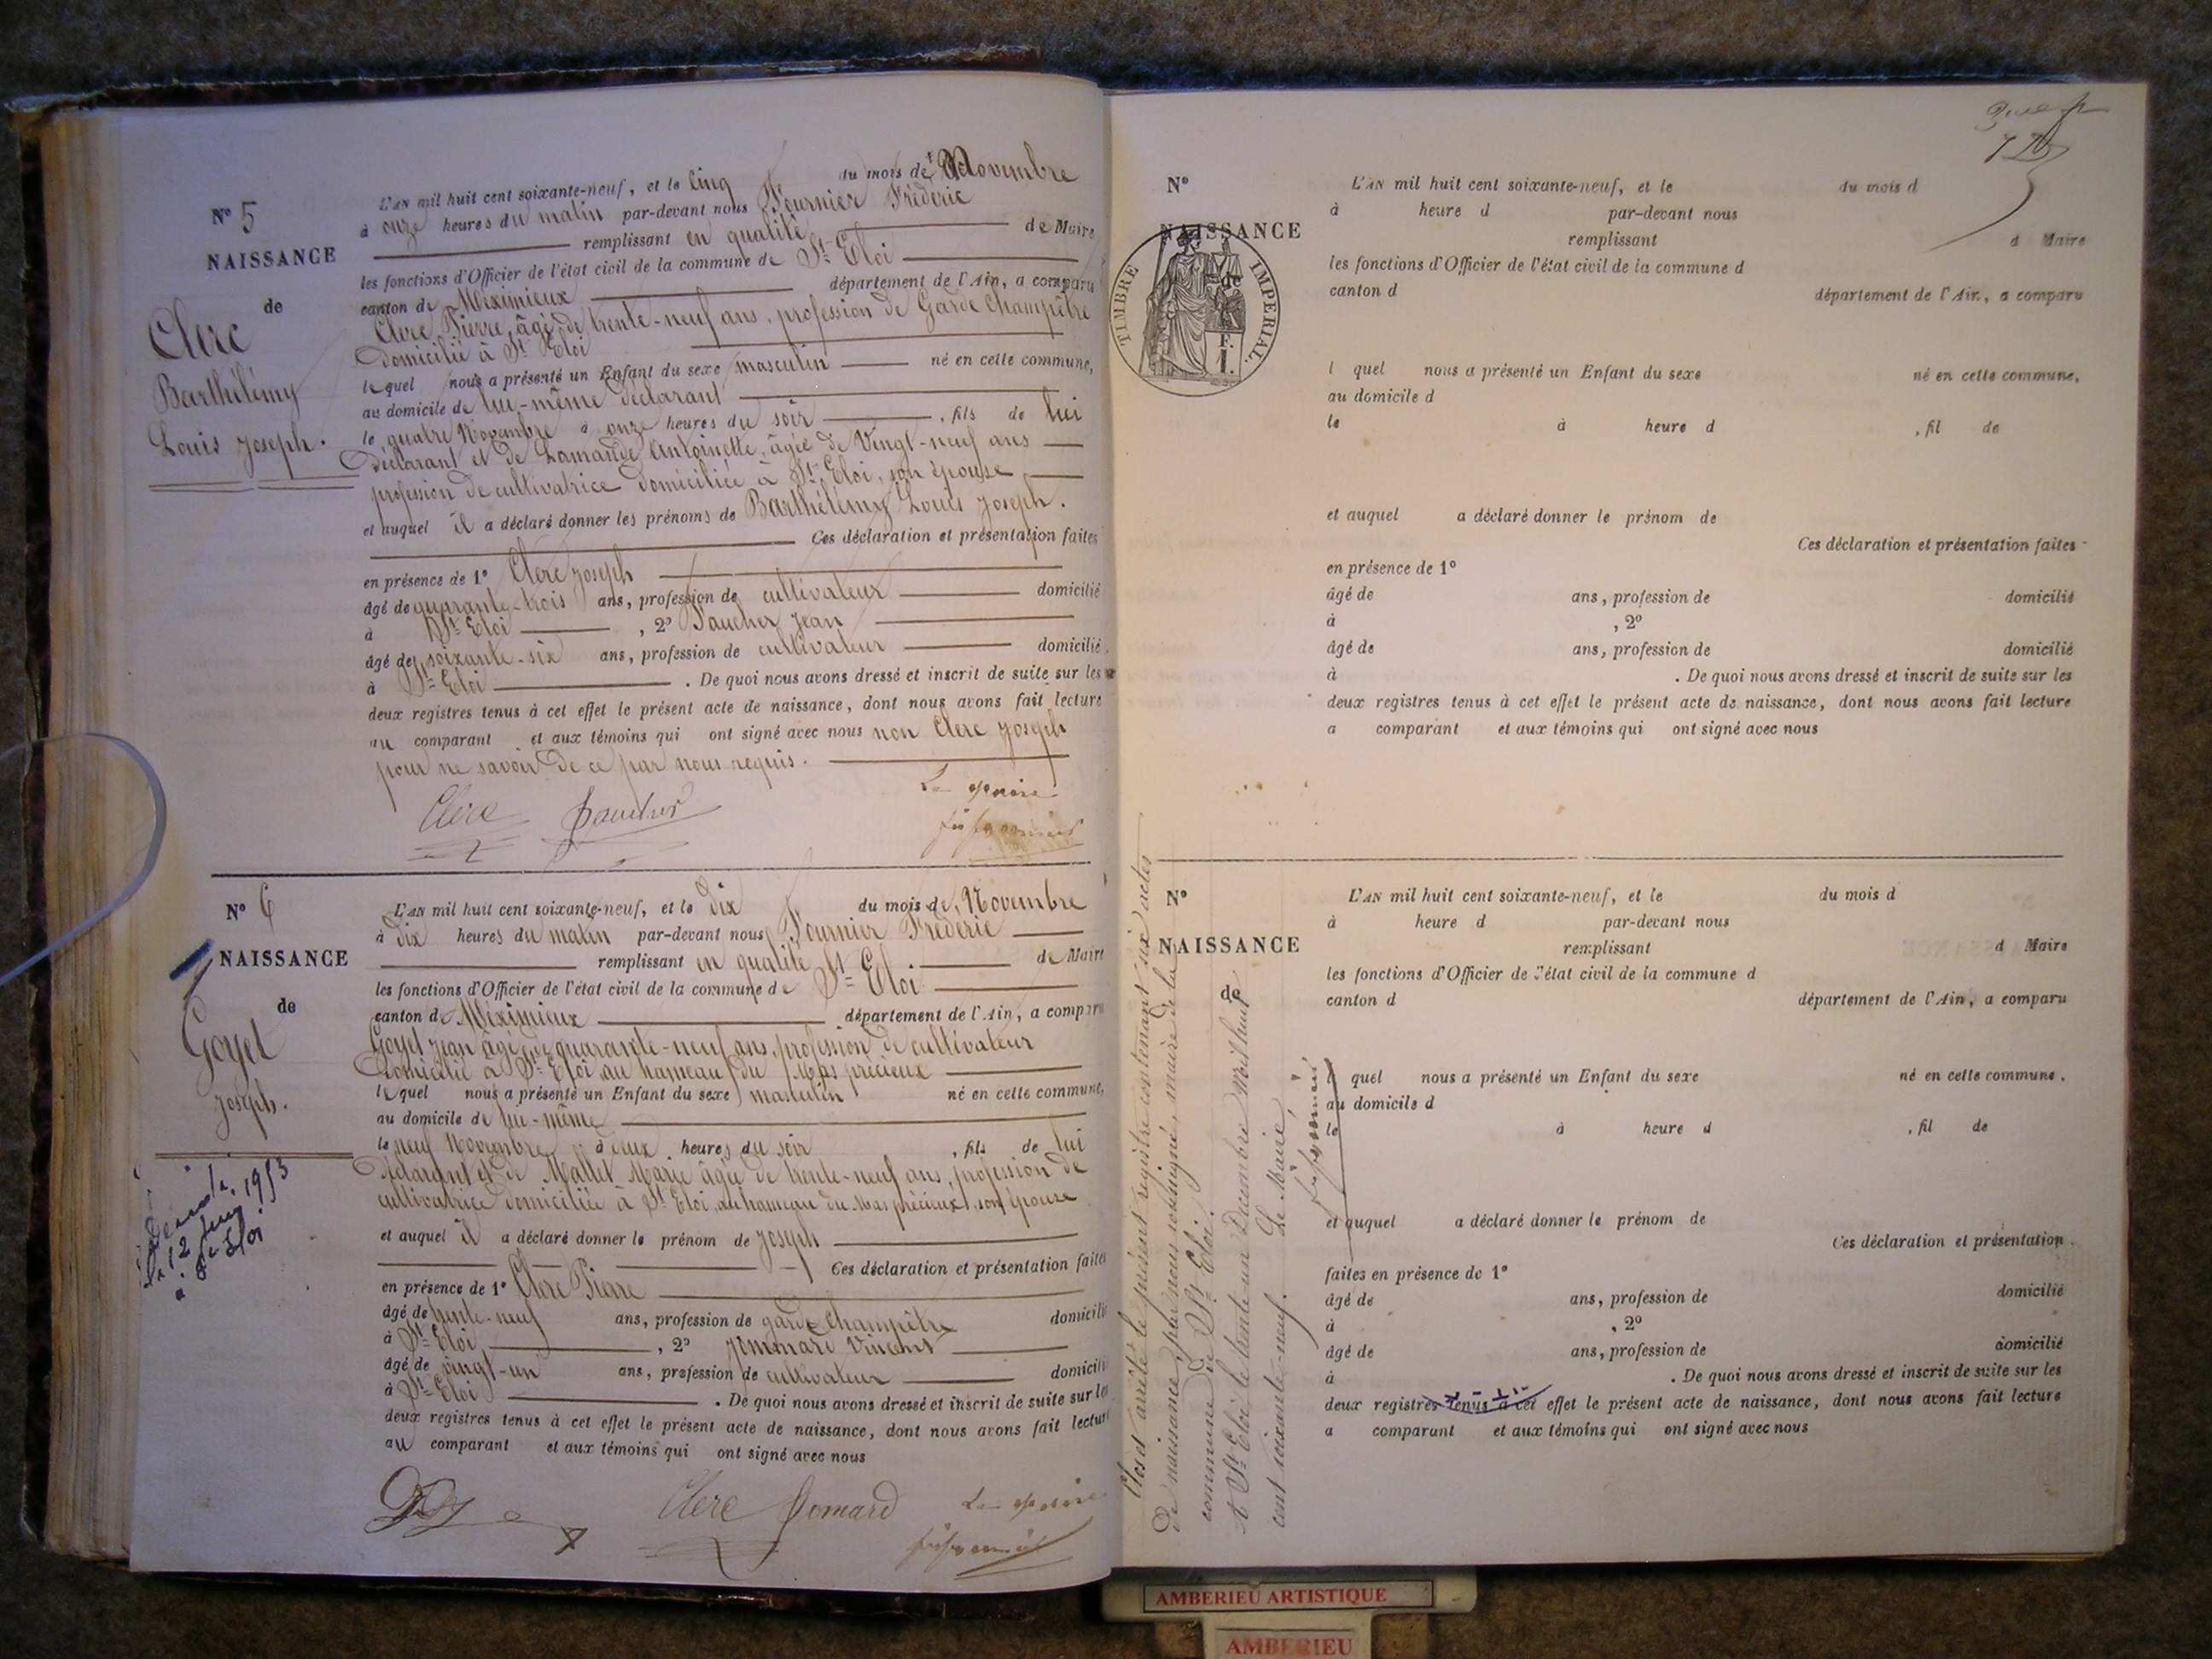 N° 5
NAISSANCE
de
Clerc
Barthélémy
Louis Joseph.
L'AN mil huit cent soixante-neuf, et le cinq du mois de Novembre
à onze heures du matin par-devant nous Fournier Frédéric
remplissant en qualité de Maire
les fonctions d'Officier de l'état civil de la commune de St Eloi
canton de Méximieux département de l'Ain, a comparu
Clerc Pierre, âgé de trente-neuf ans, profession de Garde Champêtre
domicilié à St Eloi
lequel nous a présenté un Enfant du sexe masculin né en cette commune,
au domicile de lui-même déclarant
le quatre Novembre à onze heures du soir, fils de lui
déclarant et de Lamande Antoinette, âgée de Vingt-neuf ans
profession de cultivatrice domiciliée à St Eloi, son épouse
et auquel il a déclaré donner les prénoms de Barthélémy Louis Joseph.
Ces déclaration et présentation faites
en présence de 1° Clerc Joseph
âgé de quarante-trois ans, profession de cultivateur domicilié
à St Eloi, 2° Faucher Jean
âgé de soixante-six ans, profession de cultivateur domicilié
à St Eloi. De quoi nous avons dressé et inscrit de suite sur les
deux registres tenus à cet effet le présent acte de naissance, dont nous avons fait lecture
au comparant et aux témoins qui ont signé avec nous non Clerc Joseph
pour ne savoir de ce par nous requis.
Clerc Faucher Le maire
N° 6
NAISSANCE
de
Goyet
Joseph.
1953
12
St Eloi
L'AN mil huit cent soixante-neuf, et le dix du mois de Novembre
à dix heures du matin par-devant nous Fournier Frédéric
remplissant en qualité de Maire
les fonctions d'Officier de l'état civil de la commune de St Eloi
canton de Méximieux département de l'Ain, a comparu
Goyet Jean âgé de quarante-neuf ans, profession de cultivateur
domicilié à St Eloi au hameau du Mas précieux
lequel nous a présenté un Enfant du sexe masculin né en cette commune,
au domicile de lui-même
le neuf Novembre à deux heures du soir, fils de lui
déclarant et de Mallet Marie âgée de trente-neuf ans, profession de
cultivatrice domiciliée à St Eloi, au hameau du Mas précieux, son épouse
et auquel il a déclaré donner le prénom de Joseph
Ces déclaration et présentation faites
en présence de 1° Clerc Pierre
âgé de trente-neuf ans, profession de garde Champêtre domicilié
à St Eloi, 2° Jommard Vincent
âgé de vingt-un ans, profession de cultivateur domicilié
à St Eloi. De quoi nous avons dressé et inscrit de suite sur les
deux registres tenus à cet effet le présent acte de naissance, dont nous avons fait lecture
au comparant et aux témoins qui ont signé avec nous
Clerc Jomard Le maire
N°
NAISSANCE
de
TIMBRE IMPERIAL.
F.
1.
L'AN mil huit cent soixante-neuf, et le du mois d
à heure d par-devant nous
remplissant d Maire
les fonctions d'Officier de l'état civil de la commune d
canton d département de l'Ain, a comparu
l quel nous a présenté un Enfant du sexe né en cette commune,
au domicile d
le à heure d , fil de
et auquel a déclaré donner le prénom de
Ces déclaration et présentation faites
en présence de 1°
âgé de ans, profession de domicilié
à , 2°
âgé de ans, profession de domicilié
à . De quoi nous avons dressé et inscrit de suite sur les
deux registres tenus à cet effet le présent acte de naissance, dont nous avons fait lecture
a comparant et aux témoins qui ont signé avec nous
N°
NAISSANCE
de
L'AN mil huit cent soixante-neuf, et le du mois d
à heure d par-devant nous
remplissant d Maire
les fonctions d'Officier de l'état civil de la commune d
canton d département de l'Ain, a comparu
l quel nous a présenté un Enfant du sexe né en cette commune,
au domicile d
le à heure d , fil de
et auquel a déclaré donner le prénom de
Ces déclaration et présentation
faites en présence de 1°
âgé de ans, profession de domicilié
à , 2°
âgé de ans, profession de domicilié
à . De quoi nous avons dressé et inscrit de suite sur les
deux registres tenus à cet effet le présent acte de naissance, dont nous avons fait lecture
a comparant et aux témoins qui ont signé avec nous
Clos et arrêté le présent registre contenant six actes
de naissance, par nous soussigné, maire de la
commune de St Eloi.
A St Eloi le trente-un Décembre mil huit
cent soixante-neuf. Le Maire,
AMBERIEU ARTISTIQUE
AMBERIEU